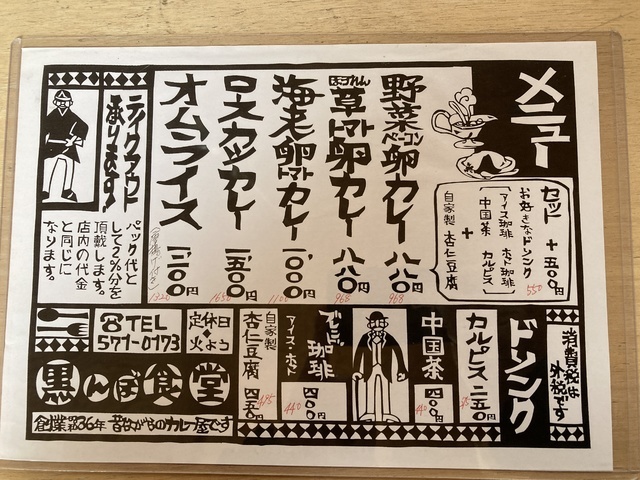 メニュー
野菜ベーコン卵カレー 八八〇円
968
ほうれん草トマト卵カレー 八八〇円
968
海老卵トマトカレー 一、〇〇〇円
1100
ロースカツカレー 一、五〇〇円
1650
オムライス
1320
セット +五〇〇円
550
お好きなドリンク
アイス珈琲 ホット珈琲
中国茶 カルピス
+
自家製 杏仁豆腐
テイクアウト
承ります!
パック代と
して2%分を
頂載します。
店内の代金
と同じに
なります。
消費税は
外税です
ドリンク
カルピス 二五〇円
中国茶 四〇〇円
440
珈琲
アイス・ホット 四〇〇円
440
自家製
杏仁豆腐 四五〇円
495
定休日
火よう
☎TEL
571-0173
黒んぼ食堂
創業昭和36年 昔ながらのカレー屋です